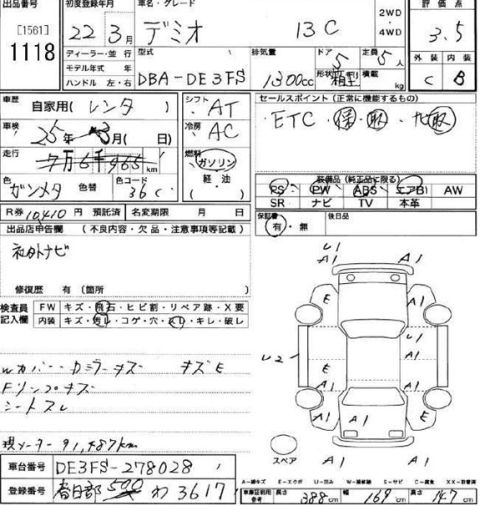 出品番号 初度登録年月 車名・グレード 評価点
[1561] 22年 3月 デミオ 13C 2WD・4WD 3.5
1118 ディーラー・並行 型式 排気量 ドア 定員 外装 内装
モデル年式 年 5 5人
ハンドル 左・右 DBA-DE3FS 1300cc 形状 積載 kg C B
車歴 自家用(レンタ) シフト AT セールスポイント(正常に機能するもの)
車検 25年 3月( 日) 冷房 AC ・ETC
走行 km 燃料 ガソリン
軽・油
装備品(純正品に限る)
色 ガンメタ 色替 色コード 36C PS PW ABS エアB AW
SR ナビ TV 本革
R券 10410円 預託済 名変期限 月 日 保証書 有・無 後日品
出品店申告欄(不良内容・欠品・注意事項等記載)
社外ナビ
修復歴 有(箇所
検査員記入欄 FW キズ・飛石・ヒビ割・リペア跡・X要
内装 キズ・汚レ・コゲ・穴・スレ・キレ・破レ
U1 A1 A1
E A1
U2 A1 A1
E A1 A1 E
A1 A1
Wカバー・Dミラーキズ キズE
Fリンプキズ
シートスレ
現メーター91,487km
スペア
車台番号 DE3FS-278028
A-線キズ E-エクボ U-凹み W-補修跡 S-サビ C-腐食 XX-交換済
登録番号 春日部 500 わ 3617
長さ 388cm 幅 169cm 高さ 147cm